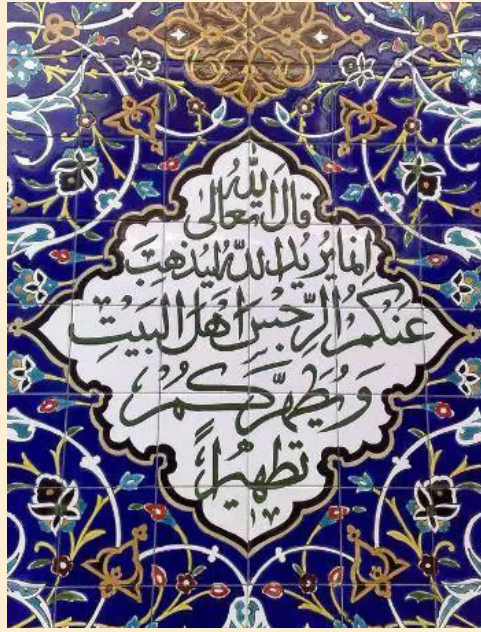 قال الله تعالى
انما يريد الله ليذهب
عنكم الرجس اهل البيت
و يطهركم
تطهيراً
١٧